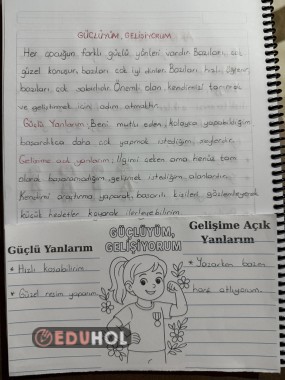 GÜÇLÜYÜM, GELİŞİYORUM
Her çocuğun farklı güçlü yönleri vardır. Bazıları çok
güzel konuşur, bazıları çok iyi dinler. Bazıları hızlı öğrenir,
bazıları çok sabırlıdır. Önemli olan kendimizi tanımak
ve geliştirmek için adım atmaktır.
Güçlü Yanlarım; Beni mutlu eden, kolayca yapabildiğim
başardıkça daha çok yapmak istediğim şeylerdir.
Gelişime açık yanlarım; İlgimi çeken ama henüz tam
olarak başaramadığım, gelişmek istediğim alanlardır.
Kendimi araştırma yaparak, başarılı kişileri gözlemleyerek
küçük hedefler koyarak ilerletebilirim.
GÜÇLÜYÜM,
GELİŞİYORUM
Güçlü Yanlarım
* Hızlı koşabilirim.
* Güzel resim yaparım.
Gelişime Açık
Yanlarım
* Yazarken bazen
harf atlıyorum.
EDUHOL